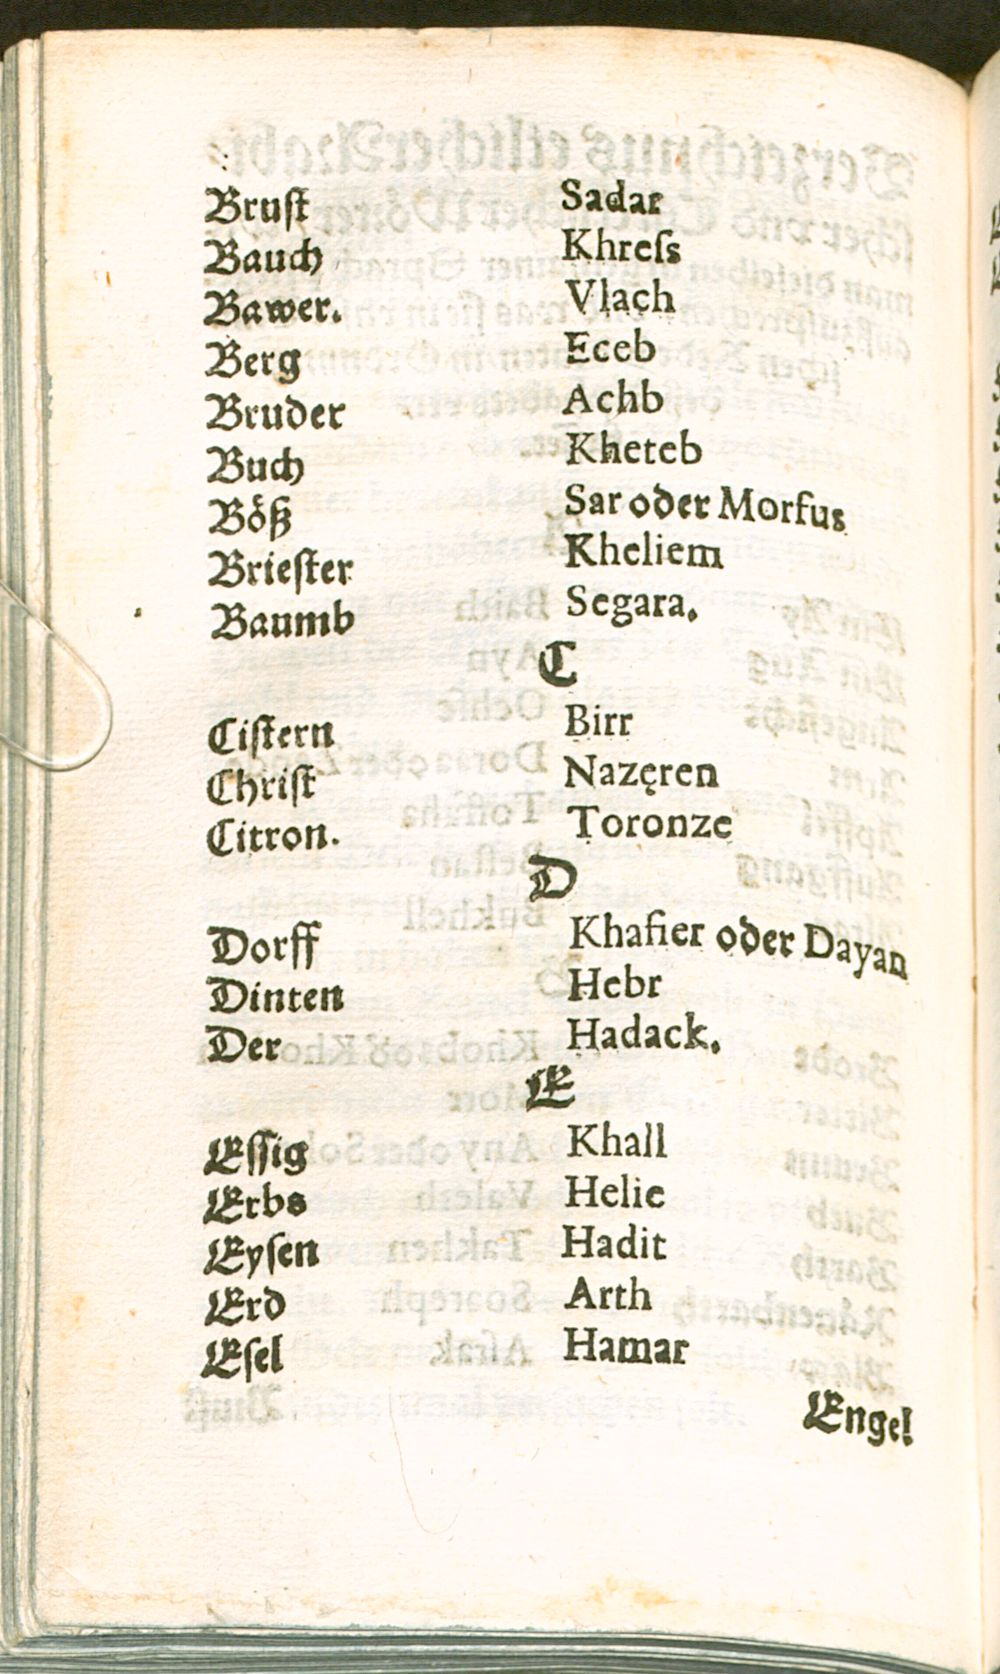 Bruſt Sadar
Bauch Khreſs
Bawer. Vlach
Berg Eceb
Bruder Achb
Buch Kheteb
Boͤß Sar oder Morfus
Brieſter Kheliem
Baumb Segara.
C
Ciſtern Birr
Chriſt Nazęren
Citron. Toronze
D
Dorff Khafier oder Dayan
Dinten Hebr
Der Hadack.
E
Eſſig Khall
Erbs Helie
Eyſen Hadit
Erd Arth
Eſel Hamar
Engel